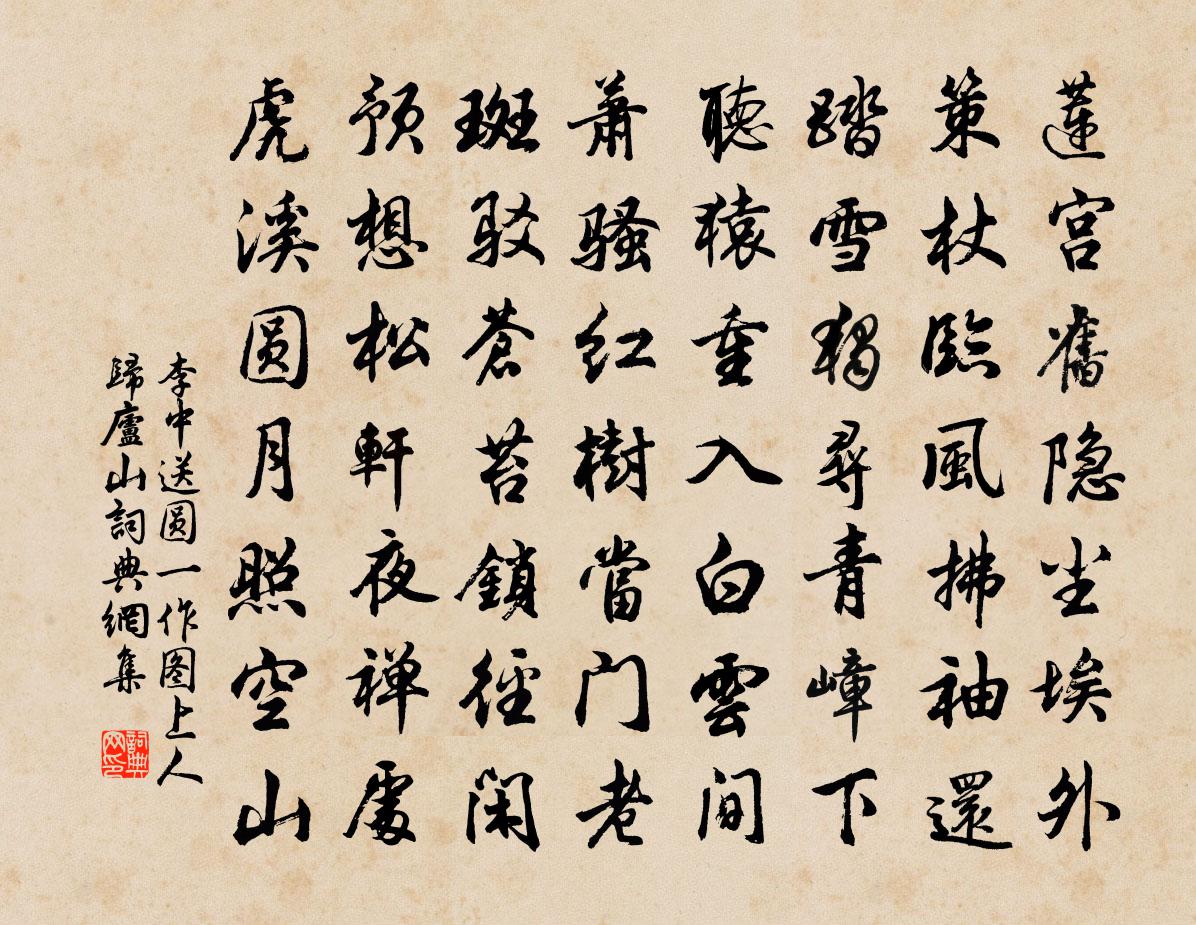 蓮宫舊隐尘埃外
策杖臨風拂袖還
踏雪獨尋青嶂下
聽猿重入白雲间
萧骚红樹當门老
斑驳苍苔鎖徑闲
预想松軒夜禅處
虎溪圆月照空山
李中送圆一作图上人
歸廬山詞典網集
詞典
网印